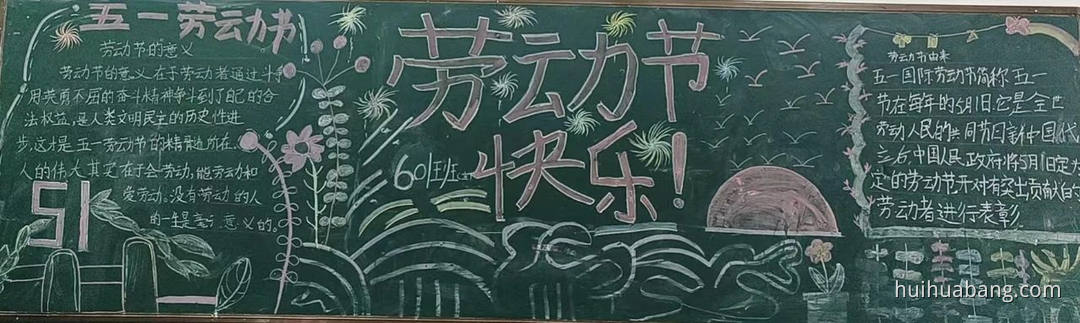 五一劳动节
劳动节的意义
劳动节的意义在于劳动者通过斗争
用英勇不屈的奋斗精神争斗到了自己的合
法权益,是人类文明民主的历史性进
步,这才是五一劳动节的精髓所在。
人的伟大其实在于会劳动,能劳动和
爱劳动。没有劳动的人
的一生是毫无意义的。
51
劳动节
快乐!
601班
劳动节由来
五一国际劳动节简称五一
节在每年的5月1日。它是全世
劳动人民的共同节日新中国代
立后中国人民政府将5月1日定为
定的劳动节并对有突出贡献的
劳动者进行表彰
huihuabang.com